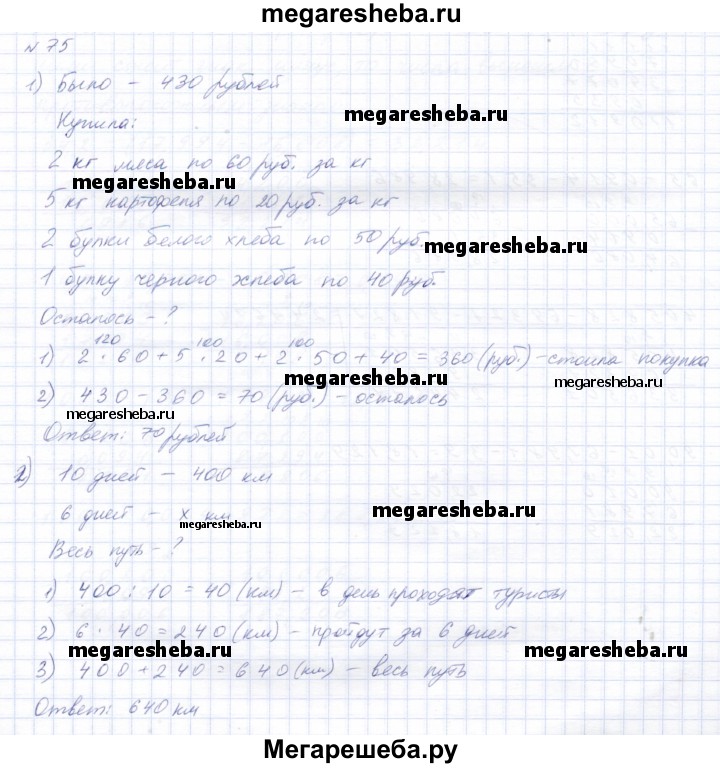 megaresheba.ru
№ 75
1) Было – 430 рублей
megaresheba.ru
Купила:
2 кг мяса по 60 руб. за кг
megaresheba.ru
5 кг картофеля по 20 руб. за кг
2 булки белого хлеба по 50 руб.
megaresheba.ru
1 булку черного хлеба по 40 руб.
Осталось – ?
120 100 100
1) 2 · 60 + 5 · 20 + 2 · 50 + 40 = 360 (руб.) – стоила покупка
megaresheba.ru
megaresheba.ru
2) 430 – 360 = 70 (руб.) – осталось
megaresheba.ru
Ответ: 70 рублей
2) 10 дней – 400 км
6 дней – х км
megaresheba.ru
megaresheba.ru
Весь путь – ?
1) 400 : 10 = 40 (км) – в день проходят туристы
2) 6 · 40 = 240 (км) – пройдут за 6 дней
megaresheba.ru
megaresheba.ru
3) 400 + 240 = 640 (км) – весь путь
Ответ: 640 км
Мегарешеба.ру